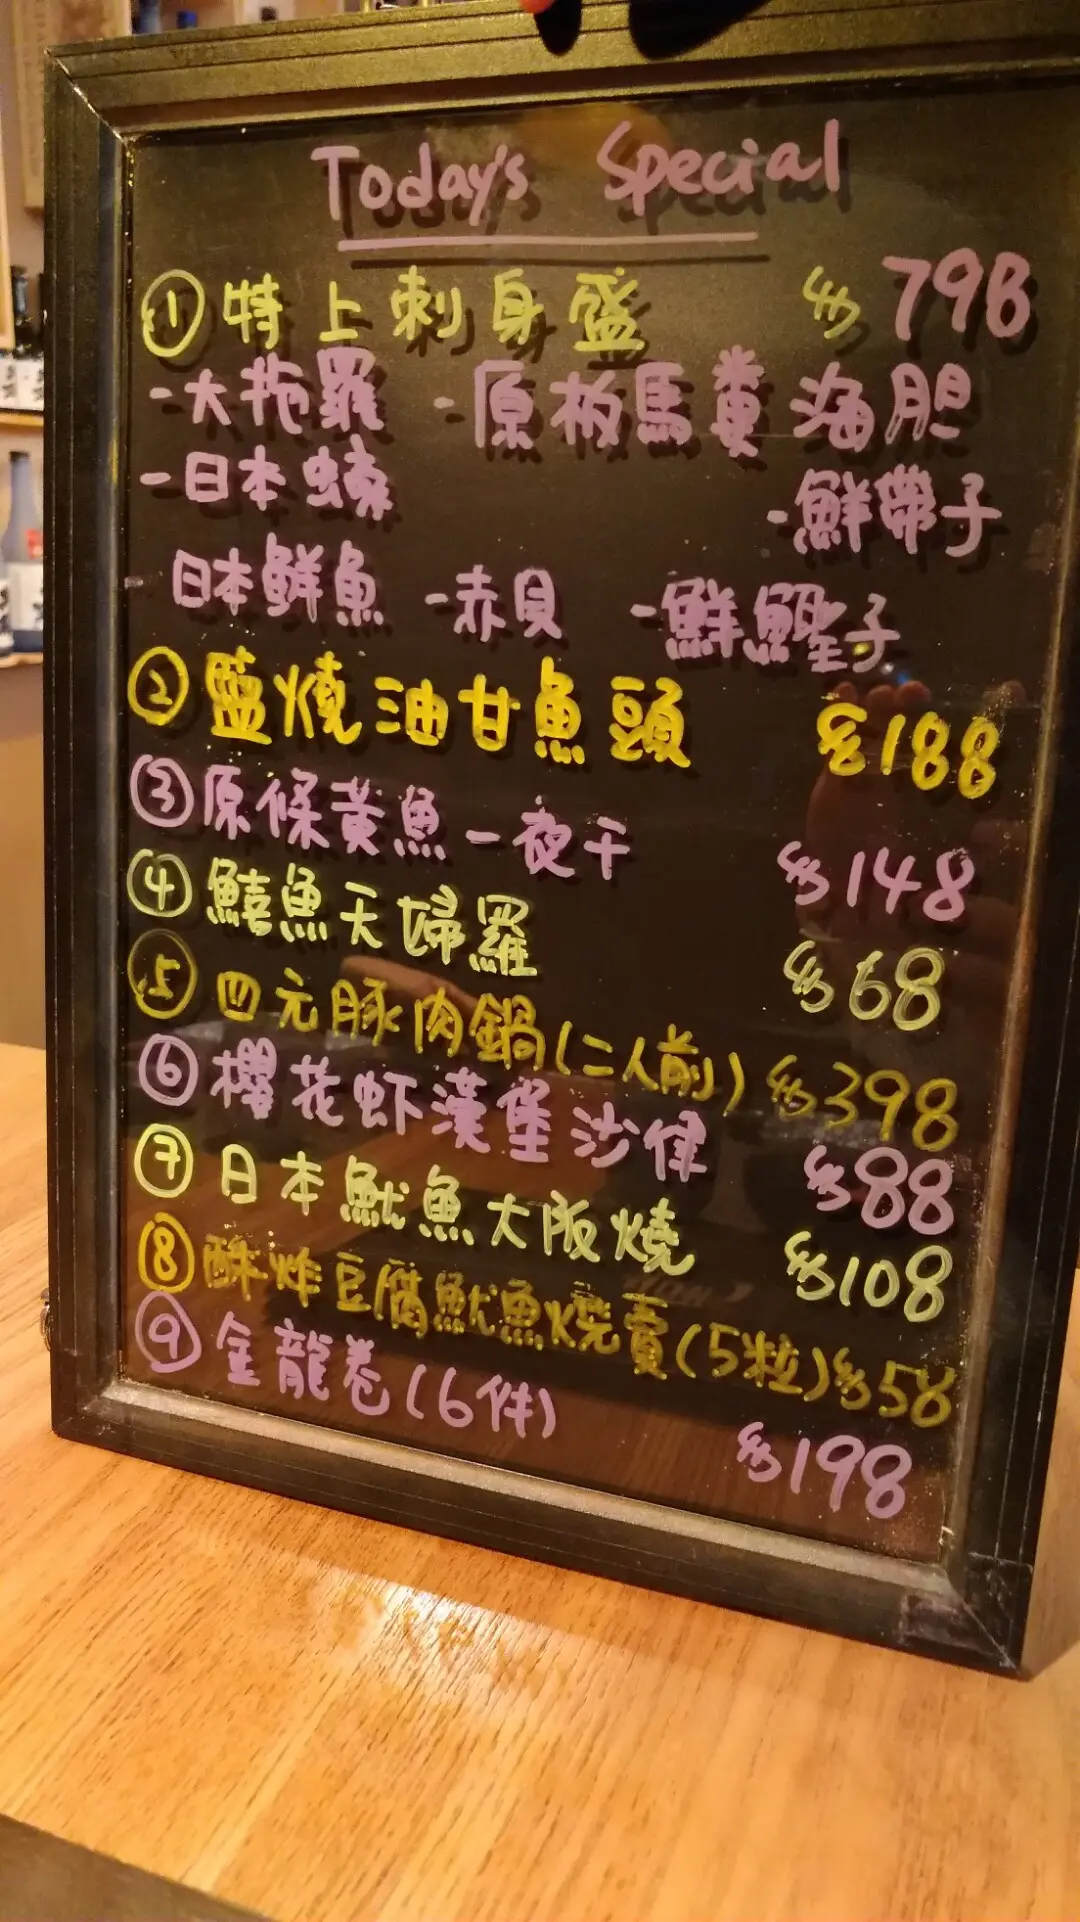 Today's Special
① 特上刺身盛 $798
-大拖羅 -原板馬糞海胆
-日本蠔 -鮮帶子
日本鮮魚 -赤貝 -鮮鰹子
② 鹽燒油甘魚頭 $188
③ 原條黃魚一夜干 $148
④ 鱚魚天婦羅 $68
⑤ 四元豚肉鍋(二人前) $398
⑥ 櫻花虾漢堡沙律 $88
⑦ 日本魷魚大阪燒 $108
⑧ 酥炸豆腐魷魚燒賣(5粒) $58
⑨ 金龍卷(6件) $198